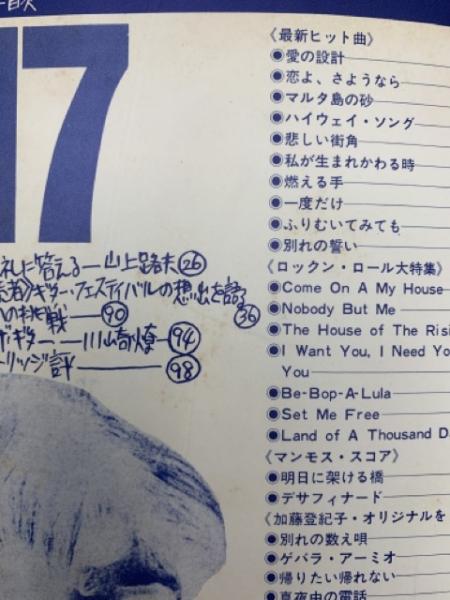 目次
17
礼に答える―山上路夫㉖
ギター・フェスティバルの想い出を語る
㊱
の挑戦―(90)
ギター―川崎燎(94)
リッジ評―(98)
《最新ヒット曲》
◉愛の設計
◉恋よ、さようなら
◉マルタ島の砂
◉ハイウェイ・ソング
◉悲しい街角
◉私が生まれかわる時
◉燃える手
◉一度だけ
◉ふりむいてみても
◉別れの誓い
《ロックン・ロール大特集》
◉Come On A My House
◉Nobody But Me
◉The House of The Risi
◉I Want You, I Need Yo
You
◉Be-Bop-A-Lula
◉Set Me Free
◉Land of A Thousand D
《マンモス・スコア》
◉明日に架ける橋
◉デサフィナード
《加藤登紀子・オリジナルを
◉別れの数え唄
◉ゲバラ・アーミオ
◉帰りたい帰れない
◉真夜中の電話